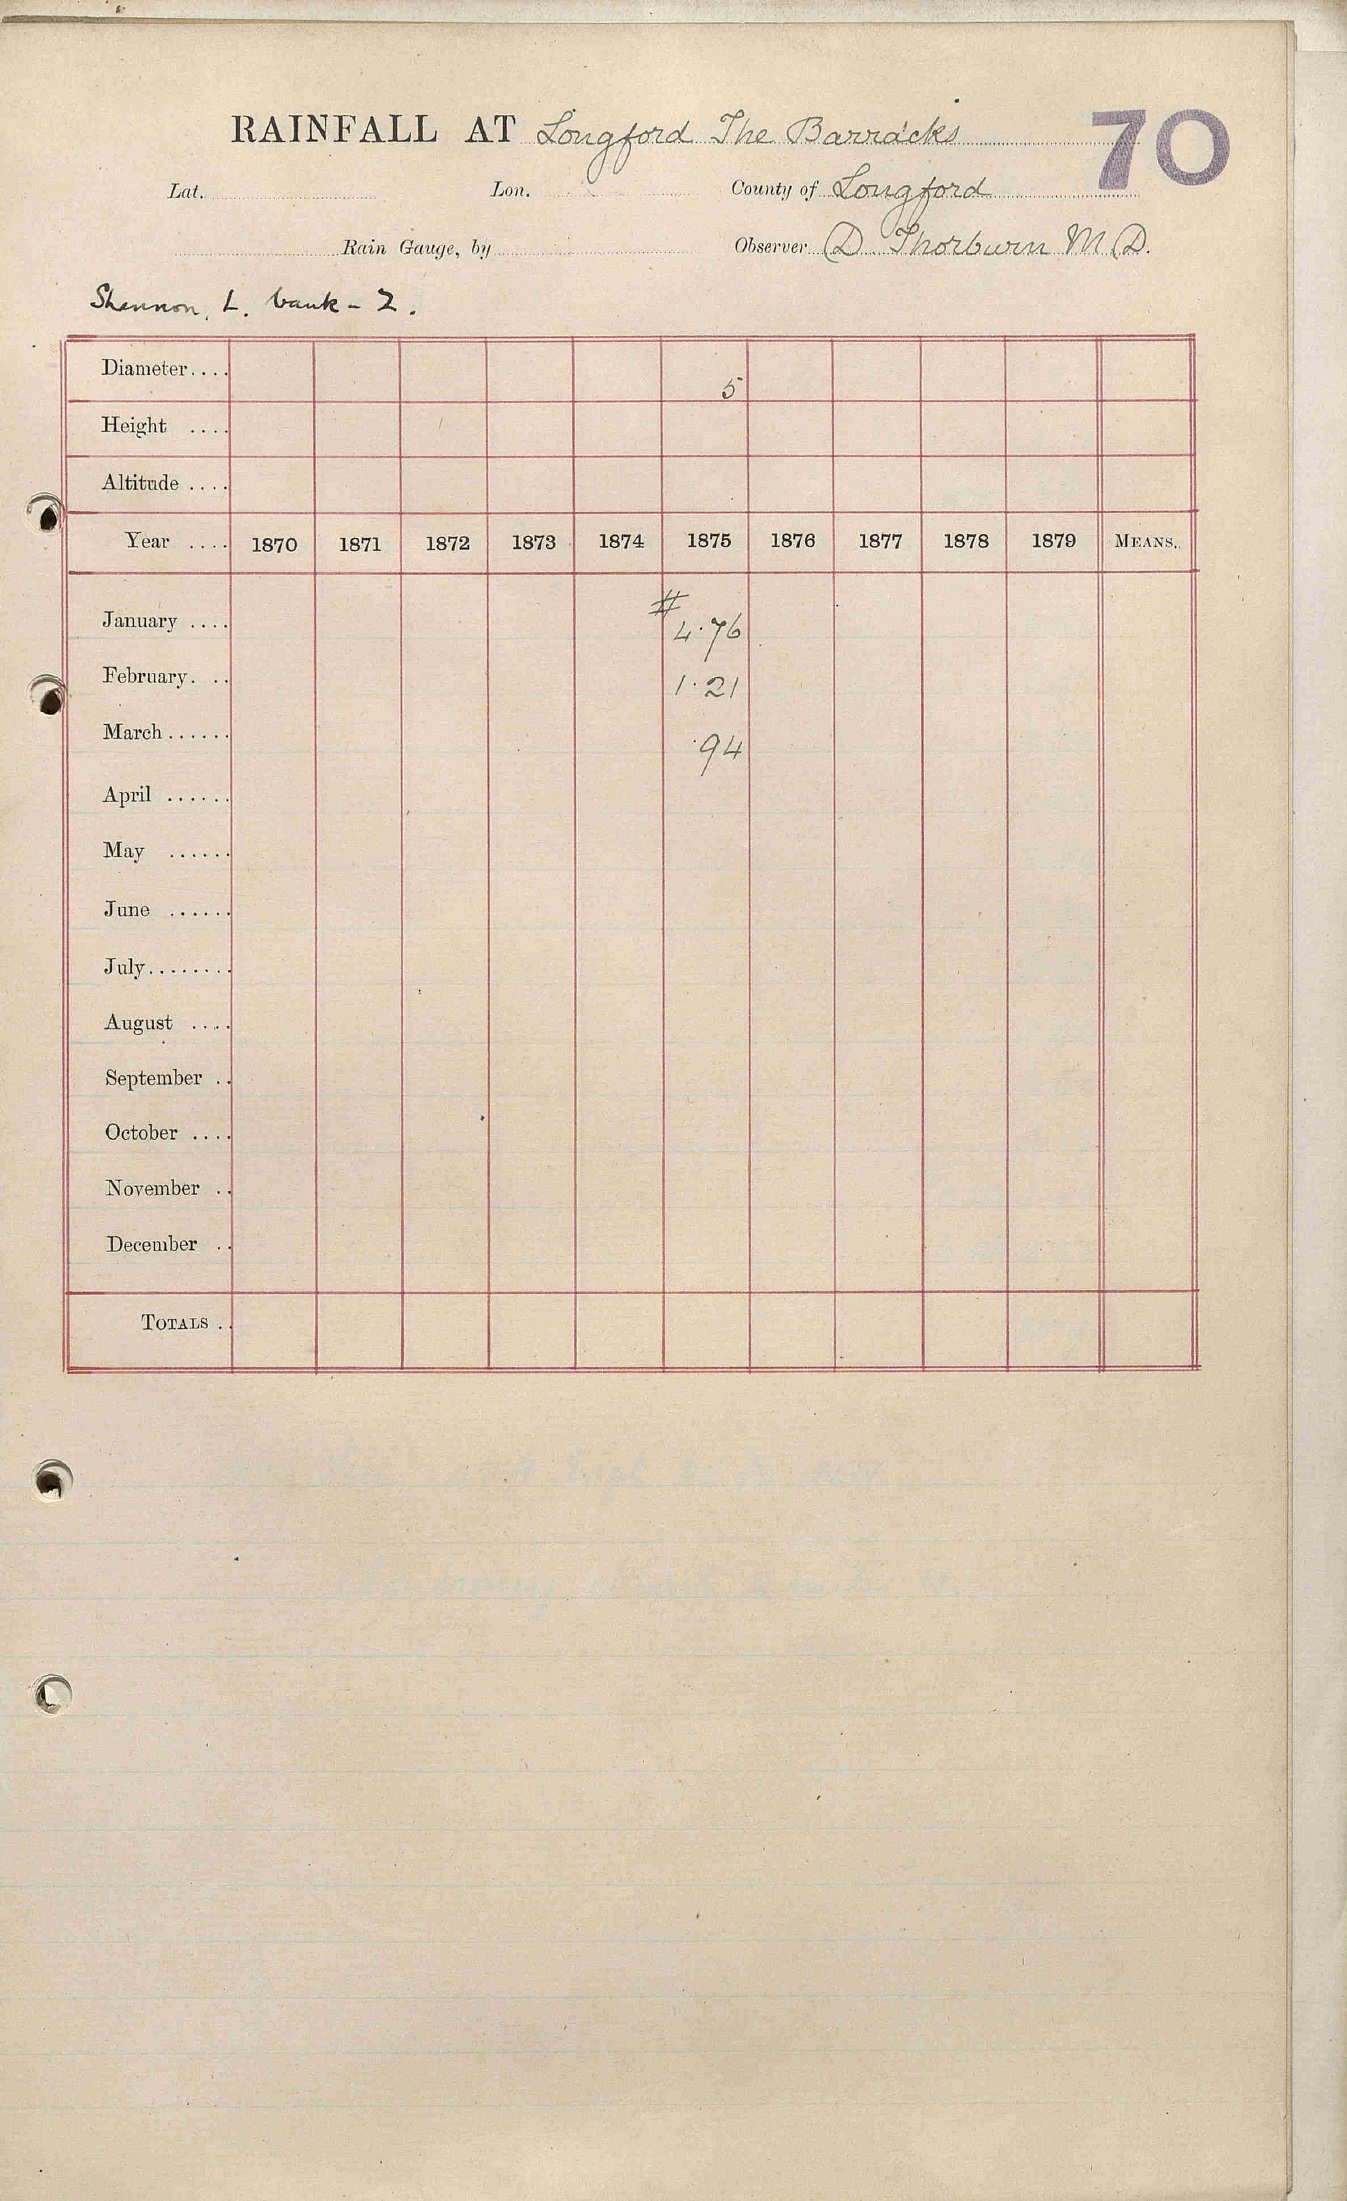 RAINFALL AT Longford The Barracks 70
Lat. Lon. County of Longford
Rain Gauge, by Observer D. Thorburn M.D.
Shannon, L. bank - 2.
Diameter.... 5
Height ....
Altitude ....
Year .... 1870 1871 1872 1873 1874 1875 1876 1877 1878 1879 MEANS.
January .... # 4.76
February. .. 1.21
March ...... .94
April ......
May ......
June ......
July........
August ....
September ..
October ....
November ..
December ..
TOTALS ..